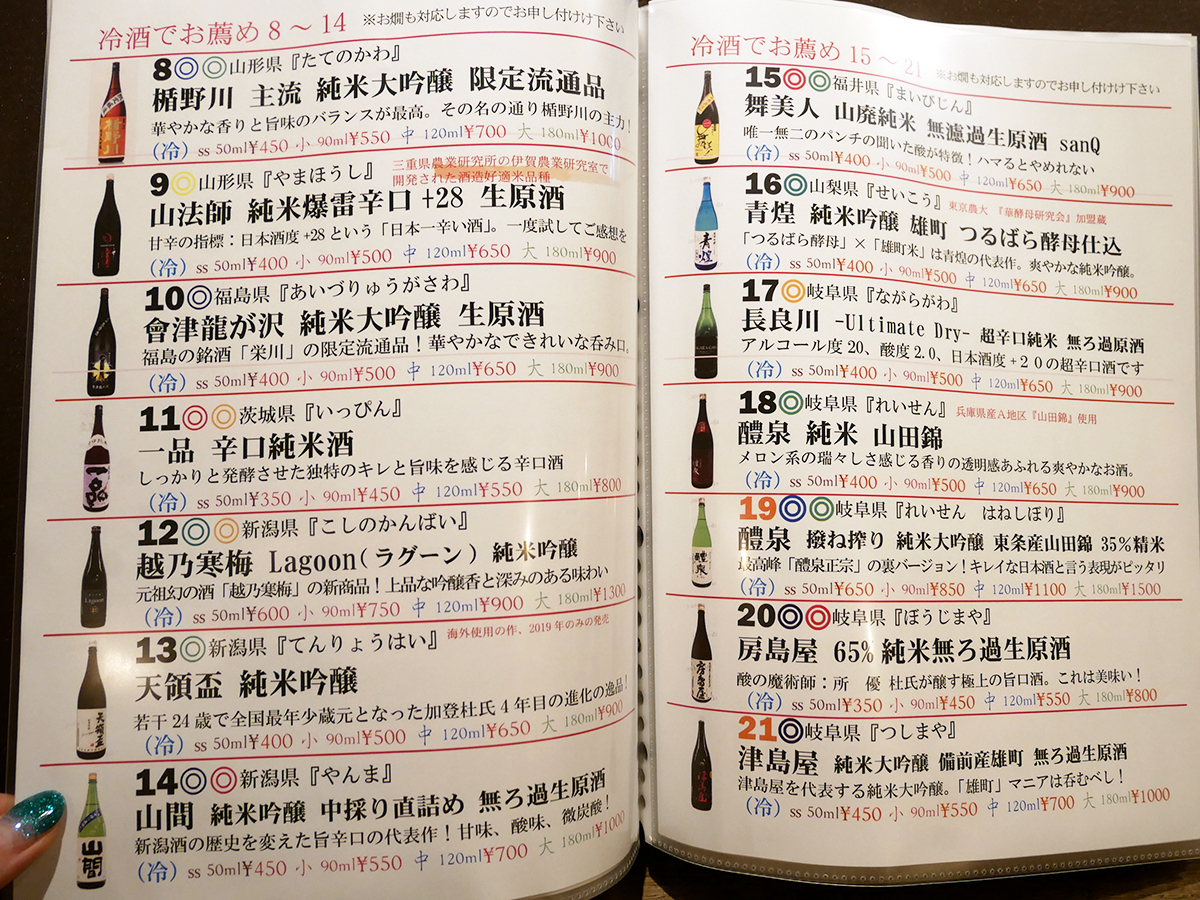 冷酒でお薦め 8 ～ 14 ※お燗も対応しますのでお申し付け下さい
8◎◎山形県『たてのかわ』
楯野川 主流 純米大吟醸 限定流通品
華やかな香りと旨味のバランスが最高。その名の通り楯野川の主力！
（冷） ss 50ml¥450 小 90ml¥550 中 120ml¥700 大 180ml¥1000
9◎山形県『やまほうし』 三重県農業研究所の伊賀農業研究室で
開発された酒造好適米品種
山法師 純米爆雷辛口+28 生原酒
甘辛の指標：日本酒度+28という「日本一辛い酒」。一度試してご感想を
（冷） ss 50ml¥400 小 90ml¥500 中 120ml¥650 大 180ml¥900
10◎福島県『あいづりゅうがさわ』
會津龍が沢 純米大吟醸 生原酒
福島の銘酒「栄川」の限定流通品！華やかなできれいな呑み口。
（冷） ss 50ml¥400 小 90ml¥500 中 120ml¥650 大 180ml¥900
11◎◎茨城県『いっぴん』
一品 辛口純米酒
しっかりと発酵させた独特のキレと旨味を感じる辛口酒
（冷） ss 50ml¥350 小 90ml¥450 中 120ml¥550 大 180ml¥800
12◎◎新潟県『こしのかんばい』
越乃寒梅 Lagoon(ラグーン) 純米吟醸
元祖幻の酒「越乃寒梅」の新商品！上品な吟醸香と深みのある味わい
（冷） ss 50ml¥600 小 90ml¥750 中 120ml¥900 大 180ml¥1300
13◎新潟県『てんりょうはい』 海外使用の作、2019年のみの発売
天領盃 純米吟醸
若干24歳で全国最年少蔵元となった加登杜氏4年目の進化の逸品！
（冷） ss 50ml¥400 小 90ml¥500 中 120ml¥650 大 180ml¥900
14◎◎新潟県『やんま』
山間 純米吟醸 中採り直詰め 無ろ過生原酒
新潟酒の歴史を変えた旨辛口の代表作！甘味、酸味、微炭酸！
（冷） ss 50ml¥450 小 90ml¥550 中 120ml¥700 大 180ml¥1000
冷酒でお薦め 15 ～ 21 ※お燗も対応しますのでお申し付け下さい
15◎◎福井県『まいびじん』
舞美人 山廃純米 無濾過生原酒 sanQ
唯一無二のパンチの聞いた酸が特徴！ハマるとやめれない
（冷） ss 50ml¥400 小 90ml¥500 中 120ml¥650 大 180ml¥900
16◎山梨県『せいこう』 東京農大 『華酵母研究会』加盟蔵
青煌 純米吟醸 雄町 つるばら酵母仕込
「つるばら酵母」×「雄町米」は青煌の代表作。爽やかな純米吟醸。
（冷） ss 50ml¥400 小 90ml¥500 中 120ml¥650 大 180ml¥900
17◎岐阜県『ながらがわ』
長良川 -Ultimate Dry- 超辛口純米 無ろ過原酒
アルコール度20、酸度2.0、日本酒度+20の超辛口酒です
（冷） ss 50ml¥400 小 90ml¥500 中 120ml¥650 大 180ml¥900
18◎岐阜県『れいせん』 兵庫県産A地区『山田錦』使用
醴泉 純米 山田錦
メロン系の瑞々しさ感じる香りの透明感あふれる爽やかなお酒。
（冷） ss 50ml¥400 小 90ml¥500 中 120ml¥650 大 180ml¥900
19◎◎岐阜県『れいせん はねしぼり』
醴泉 撥ね搾り 純米大吟醸 東条産山田錦 35%精米
最高峰「醴泉正宗」の裏バージョン！キレイな日本酒と言う表現がピッタリ
（冷） ss 50ml¥650 小 90ml¥850 中 120ml¥1100 大 180ml¥1500
20◎◎岐阜県『ぼうじまや』
房島屋 65%純米無ろ過生原酒
酸の魔術師：所 優 杜氏が醸す極上の旨口酒。これは美味い！
（冷） ss 50ml¥350 小 90ml¥450 中 120ml¥550 大 180ml¥800
21◎岐阜県『つしまや』
津島屋 純米大吟醸 備前産雄町 無ろ過生原酒
津島屋を代表する純米大吟醸。「雄町」マニアは呑むべし！
（冷） ss 50ml¥450 小 90ml¥550 中 120ml¥700 大 180ml¥1000